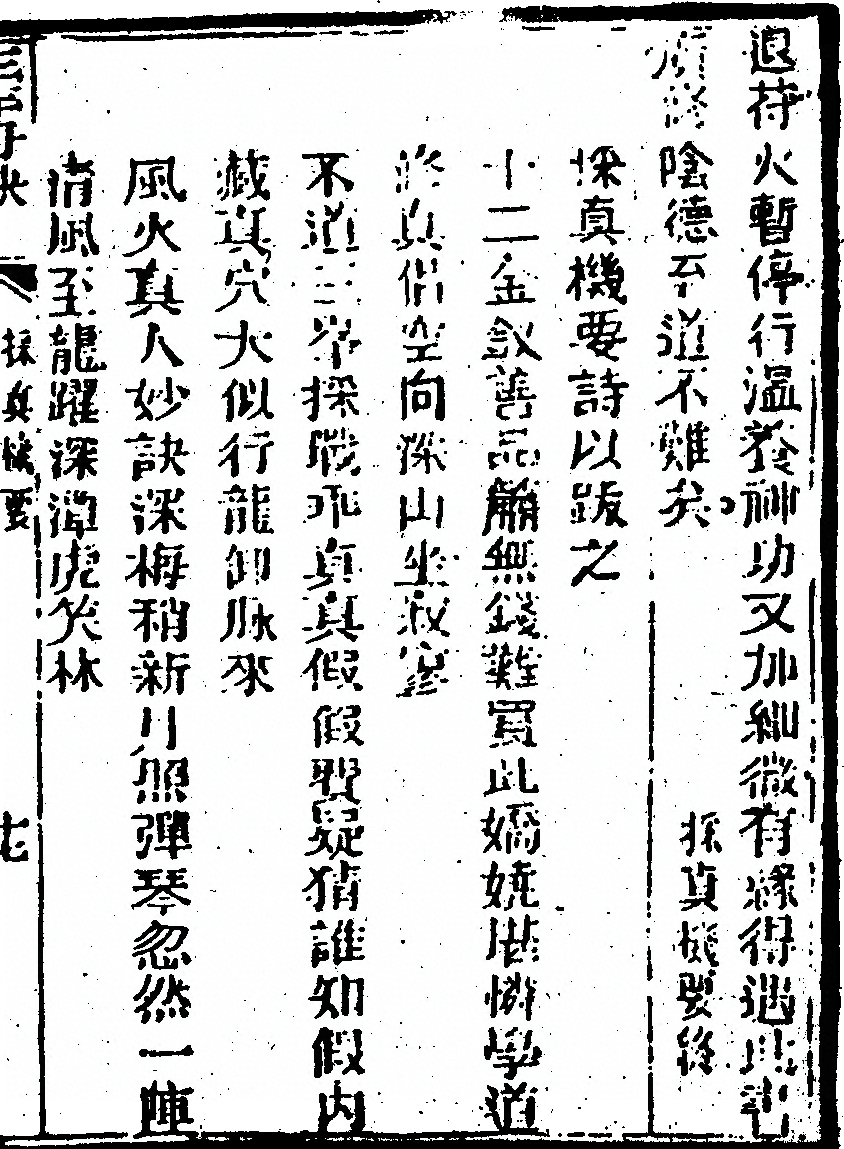 退符火暫停行溫養神功又加細微有緣得遇此書
須修陰德至道不難矣
採真機要終
採真機要詩以跋之
十二金釵善品簫無錢難買此嬌嬈堪憐學道
修真侶空向深山坐寂寥
不道三峯採戰乖真真假假要疑猜誰知假內
藏真穴大似行龍卸脉來
風火真人妙訣深梅稍新月照彈琴忽然一陣
清風至龍躍深潭虎笑林
採真機要
七